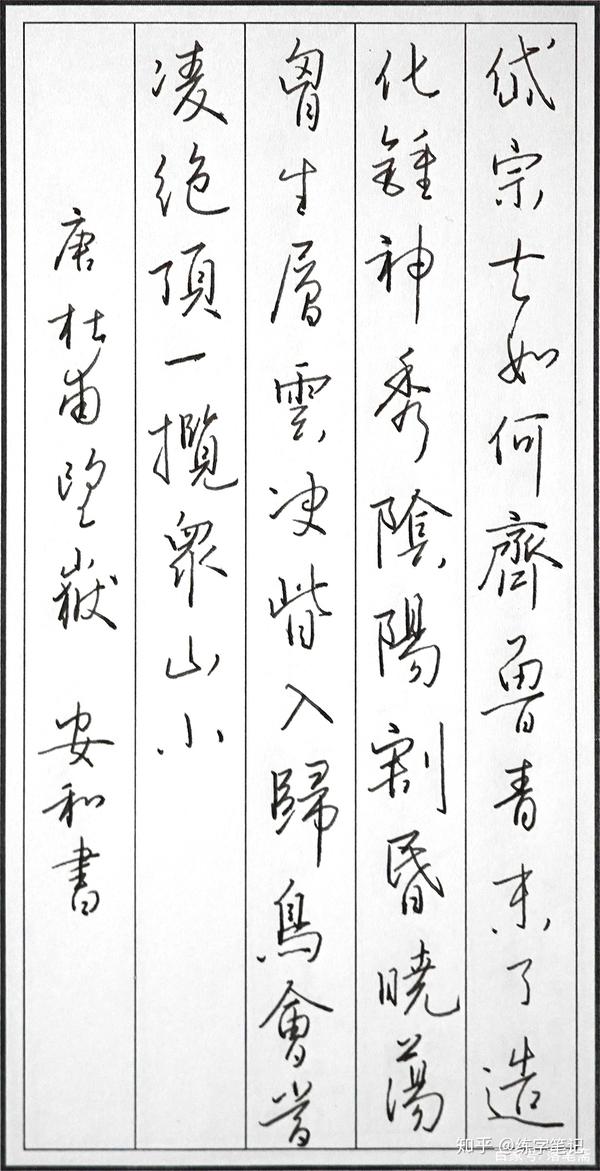 岱宗夫如何齊魯青未了造
化鍾神秀陰陽割昬曉蕩
胷生層雲决眥入歸鳥會當
凌絶頂一攬衆山小
唐杜甫望嶽 安和書
知乎 @练字笔记